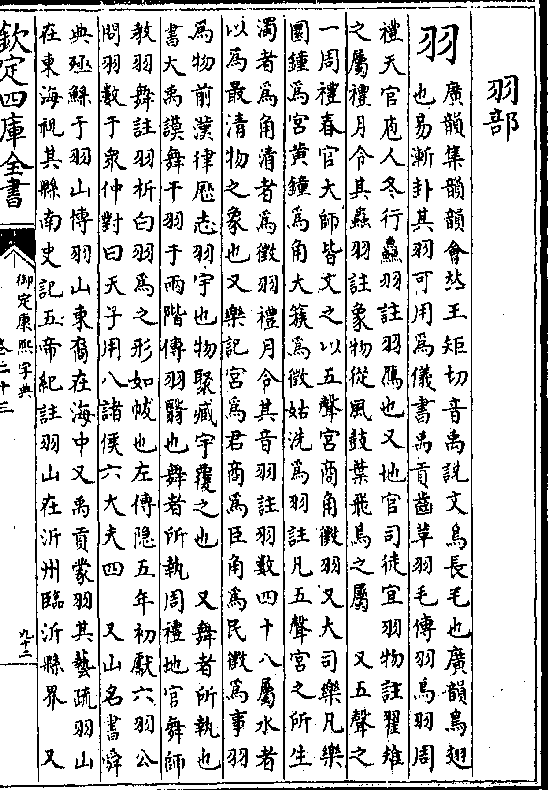 羽部
羽
廣韻集韻韻會𠀤王矩切音禹說文鳥長毛也廣韻鳥翅
也易漸卦其羽可用爲儀書禹貢齒革羽毛傳羽鳥羽周
禮天官庖人冬行鱻羽註羽鴈也又地官司徒宜羽物註翟雉
之屬禮月令其蟲羽註象物從風鼓葉飛鳥之屬　又五聲之
一周禮春官大師皆文之以五聲宮商角徵羽又大司樂凡樂
圜鍾爲宮黃鍾爲角大簇爲徵姑洗爲羽註凡五聲宮之所生
濁者爲角清者爲徵羽禮月令其音羽註羽數四十八屬水者
以爲最清物之象也又樂記宮爲君商爲臣角爲民徵爲事羽
爲物前漢律歷志羽宇也物聚藏宇覆之也　又舞者所執也
書大禹謨舞干羽于兩階傳羽翳也舞者所執周禮地官舞師
敎羽舞註羽析白羽爲之形如帗也左傳隱五年初獻六羽公
問羽數于衆仲對曰天子用八諸侯六大夫四　又山名書舜
典殛鯀于羽山傳羽山東裔在海中又禹貢蒙羽其藝疏羽山
在東海祝其縣南史記五帝紀註羽山在沂州臨沂縣界　又
欽定四庫全書
御定康熙字典
卷二十三
九十二